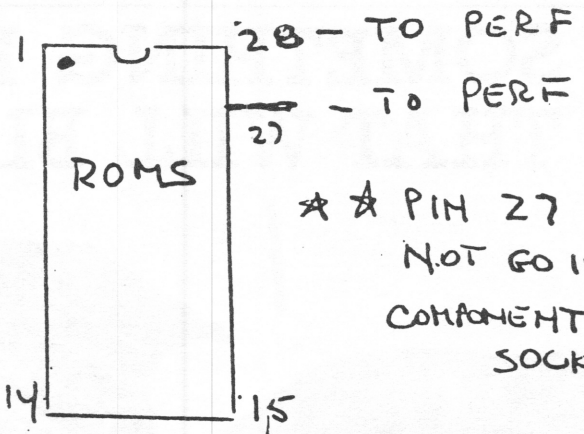 1
28 - TO PERF
27 - TO PERF
ROMS
☆ ☆ PIN 27
NOT GO I
COMPONENT
SOCK
14
15